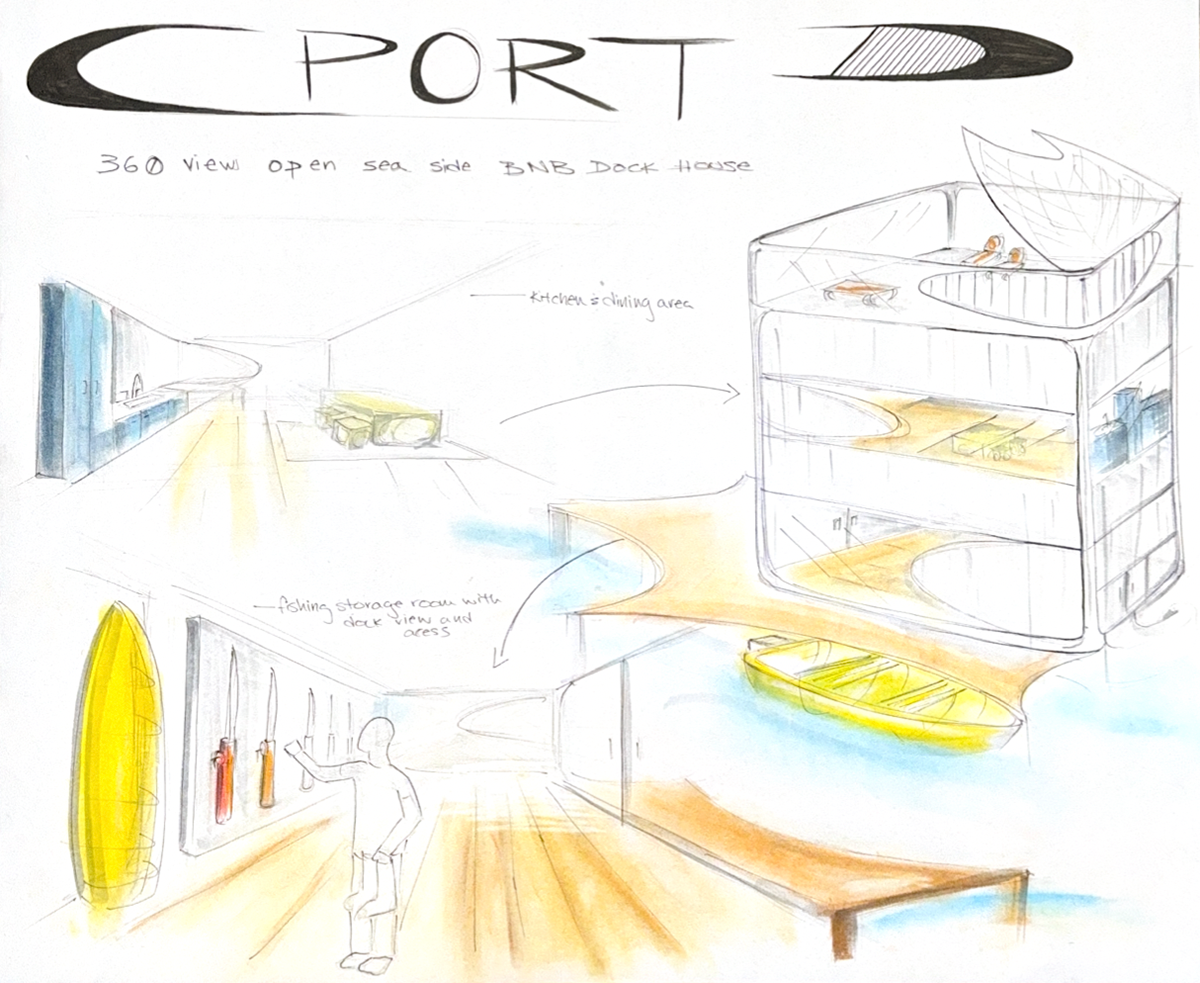 C PORT
360 view open sea side BNB Dock House
kitchen & dining area
fishing storage room with
dock view and
acess